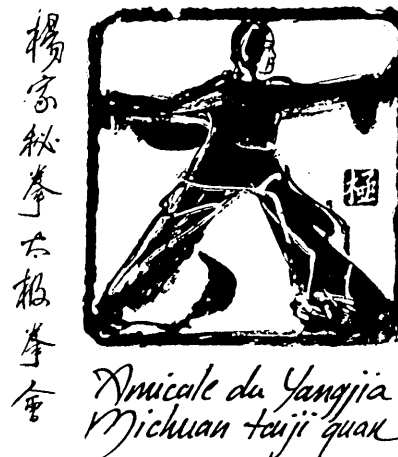 楊家秘拳太极拳會
極
Amicale du Yangjia
Michuan taiji quan